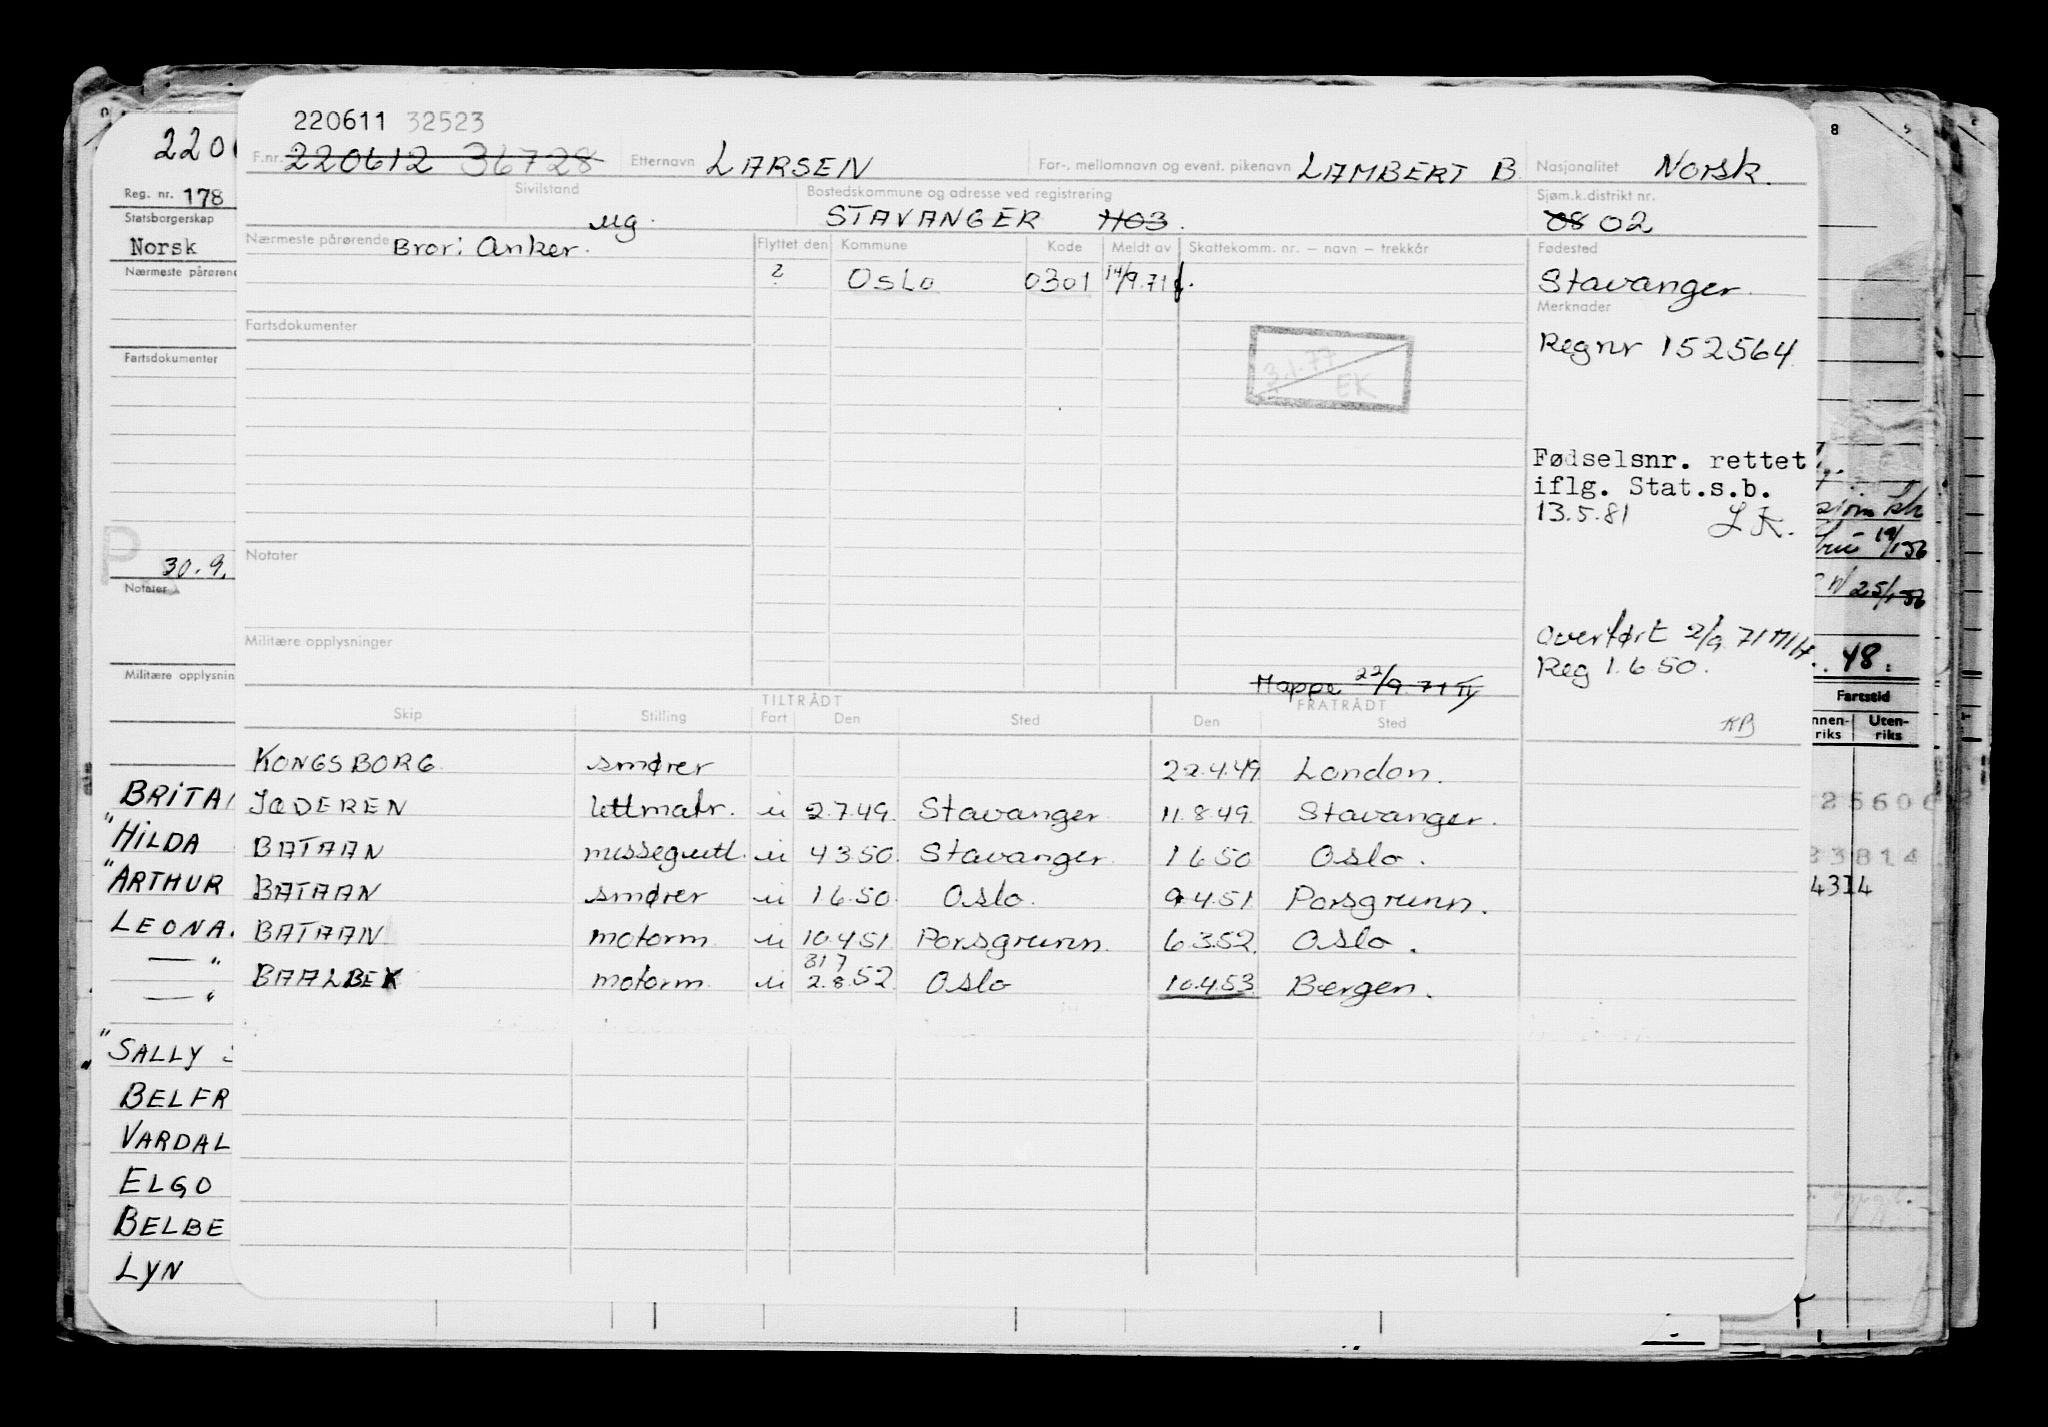 220611 32523
F.nr. 220612 36728 Etternavn LARSEN For-, mellomnavn og event. pikenavn LAMBERT B. Nasjonalitet Norsk.
Sivilstand ug. Bostedskommune og adresse ved registrering STAVANGER 1103. Sjøm.k.distrikt nr. 08 02
Nærmeste pårørende Bror: Anker. Flyttet den Kommune Kode Meldt av Skattekomm. nr. – navn – trekkår Fødested
? Oslo 0301 14/9.71 Stavanger.
Merknader
Fartsdokumenter
Regnr 152564
3.1.77
EK
Fødselsnr. rettet
iflg. Stat.s.b.
13.5.81 LK.
Notater
Overført 2/9 71 MH.
Militære opplysninger
Reg 1.6.50.
Mappe 22/9.71
TILTRÅDT FRATRÅDT
Skip Stilling Fart Den Sted Den Sted KB
KONGSBORG smører 22.4.49 London.
JÆDEREN lettmatr. u 2.7.49. Stavanger 11.8.49. Stavanger.
BATAAN messegutt. u 4 3 50. Stavanger 1 6 50 Oslo.
BATAAN smører u 1 6.50. Oslo. 9.4.51. Porsgrunn.
BATAAN motorm u 10.4.51 Porsgrunn. 6 3.52. Oslo.
31 7
BAALBEK motorm u 2.8.52. Oslo 10.4.53. Bergen.
220
Reg. nr. 178
Statsborgerskap
Norsk
Nærmeste pårørend
Fartsdokumenter
P
30.9.
Notater
Militære opplysnin
BRITA
"HILDA
"ARTHUR
LEONA
— "
— "
"SALLY
BELFR
VARDAL
ELGO
BELBE
LYN
8
sjøm
19/1 56
25/1 56
48.
Fartstid
nnen-riks Uten-riks
25606
33814
4314